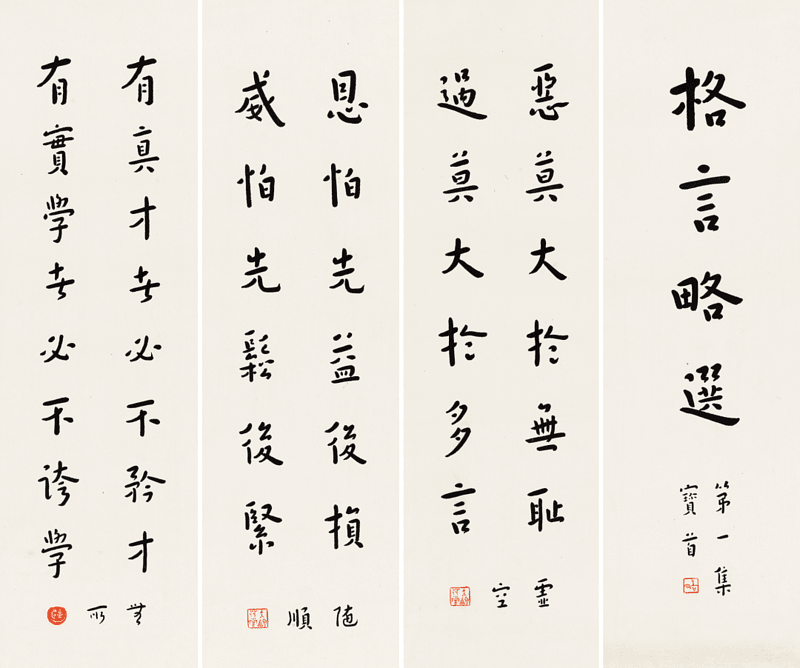 格言略選
第一集
寶首
惡莫大於無恥
過莫大於多言
靈空
恩怕先益後損
威怕先鬆後緊
隨順
有真才者必不矜才
有實學者必不誇學
無所